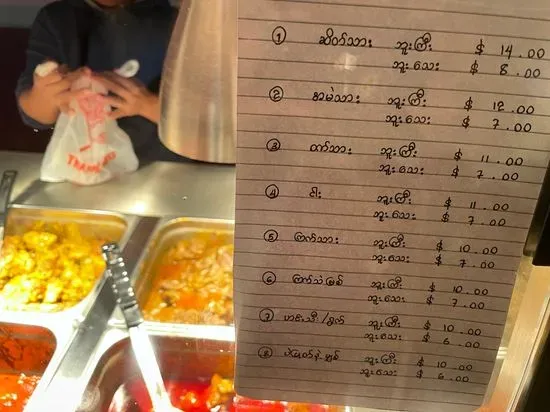 ① ဆိတ်သား ဘူးကြီး $ 14.00
ဘူးသေး $ 8.00
② အမဲသား ဘူးကြီး $ 12.00
ဘူးသေး $ 7.00
③ ဝက်သား ဘူးကြီး $ 11.00
ဘူးသေး $ 7.00
④ ငါး ဘူးကြီး $ 11.00
ဘူးသေး $ 7.00
⑤ ကြက်သား ဘူးကြီး $ 10.00
ဘူးသေး $ 7.00
⑥ ဘူးကြီး $ 10.00
ဘူးသေး $ 7.00
⑦ ဟင်းသီး/ရွက် ဘူးကြီး $ 10.00
ဘူးသေး $ 6.00
⑧ ဘူးကြီး $ 10.00
ဘူးသေး $ 6.00